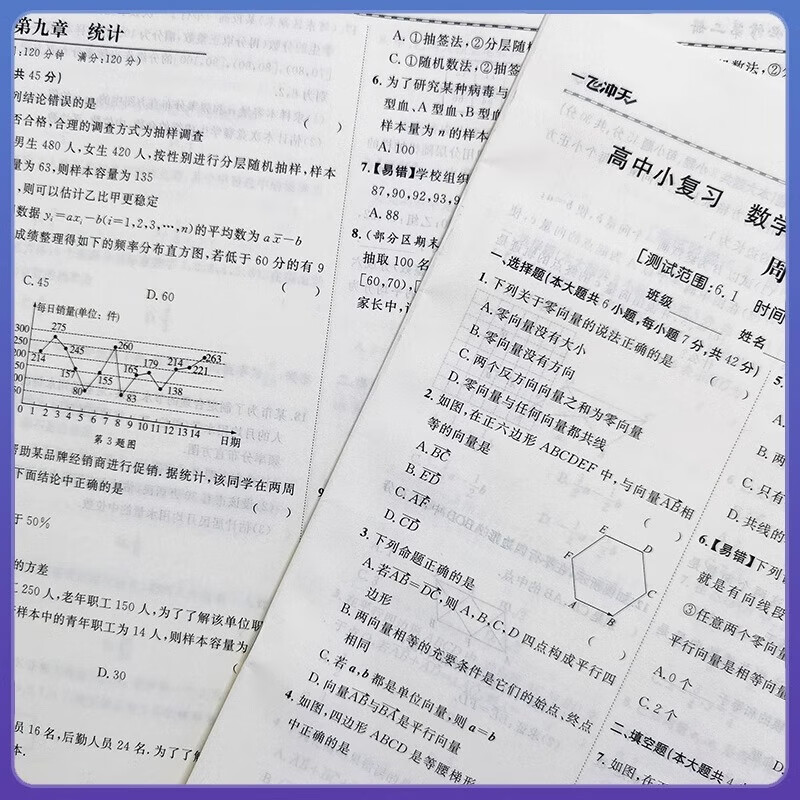 第九章 统计
120分钟 满分:120分)
共45分)
列结论错误的是
否合格,合理的调查方式为抽样调查
男生480人,女生420人,按性别进行分层随机抽样,样本
量为63,则样本容量为135
,则可以估计乙比甲更稳定
数据yᵢ=axᵢ-b(i=1,2,3,…,n)的平均数为ax̄-b
成绩整理得如下的频率分布直方图,若低于60分的有9
( )
C. 45
D. 60
每日销量(单位:件)
300
275
260
263
214
245
179
214
221
157
155
165
80
83
0 1 2 3 4 5 6 7 8 9 10 11 12 13 14 日期
第3题图
帮助某品牌经销商进行促销.据统计,该同学在两周
下面结论中正确的是
( )
于50%
的方差
250人,老年职工150人,为了了解该单位职
样本中的青年职工为14人,则样本容量为
D. 30
员16名,后勤人员24名.为了了解
本.
A. ①抽签法,②分层随机
C. ①随机数法,②抽签
6. 为了研究某种病毒与
型血、A型血、B型血
样本量为n的样本
A. 100
7.【易错】学校组织
87,90,92,93,9
A. 88
8. (部分区期末
抽取100名
[60,70),
家长中,
9
一飞冲天
高中小复习 数学
周
[测试范围:6.1
时间
班级
姓名
一、选择题(本大题共6小题,每小题7分,共42分)
1. 下列关于零向量的说法正确的是
( )
A. 零向量没有大小
B. 零向量没有方向
C. 两个反方向向量之和为零向量
D. 零向量与任何向量都共线
2. 如图,在正六边形ABCDEF中,与向量AB相
等的向量是
( )
A. BC
B. ED
C. AF
D. CD
E
D
F
C
A
B
3. 下列命题正确的是
( )
A. 若AB=DC,则A,B,C,D四点构成平行四
边形
B. 两向量相等的充要条件是它们的始点、终点
相同
C. 若a,b都是单位向量,则a=b
D. 向量AB与BA是平行向量
4. 如图,四边形ABCD是等腰梯形
中正确的是
5.
A.
B. 两
C. 只有
D. 共线的
6.【易错】下列
就是有向线段
③任意两个零向量
平行向量是相等向量
A. 0个
C. 2个
二、填空题(本大题共4
7. 如图,在